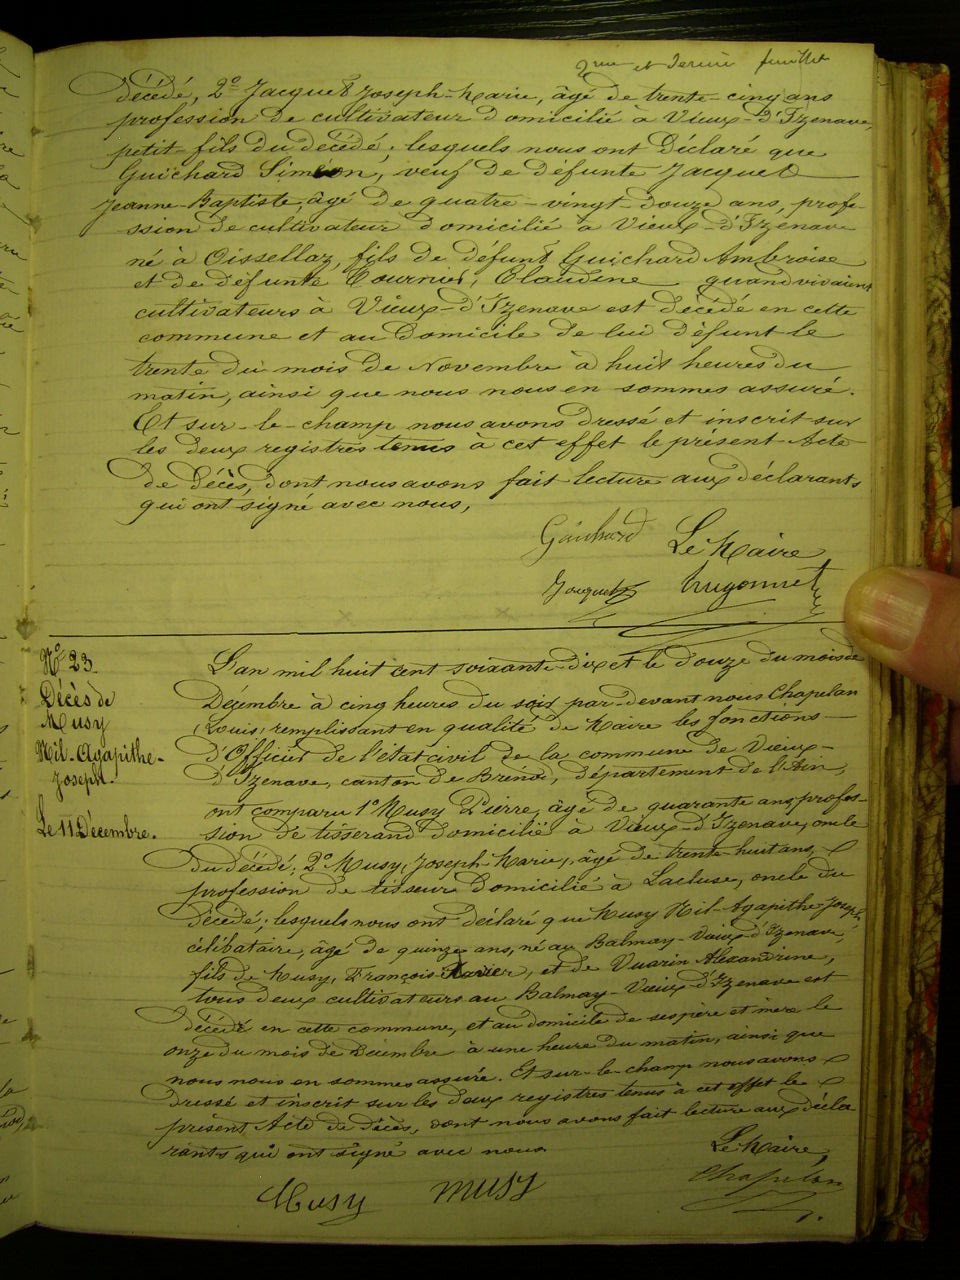 2me et dernier feuillet
décédé, 2o Jacquet Joseph-Marie, âgé de trente-cinq ans
profession de cultivateur domicilié à Vieux-d'Izenave,
petit-fils du décédé; lesquels nous ont Déclaré que
Guichard Siméon, veuf de défunte Jacquet
Jeanne-Baptiste, âgé de quatre-vingt-douze ans, profe-
ssion de cultivateur domicilié à Vieux-d'Izenave
né à Oissellaz, fils de défunt Guichard Ambroise
et de défunte Tournier, Claudine quand vivaient
cultivateurs à Vieux-d'Izenave est décédé en cette
commune et au domicile de lui défunt le
trente du mois de Novembre à huit heures du
matin, ainsi que nous nous en sommes assuré.
Et sur-le-champ nous avons dressé et inscrit sur
les deux registres tenus à cet effet le présent Acte
de décès, dont nous avons fait lecture aux déclarants
qui ont signé avec nous,
Guichard Le Maire
Jacquet Hugonnet
No 23.
Décès de
Musy
Nil-Agapithe-
Joseph.
Le 11 Décembre.
L'an mil huit cent soixante-dix et le douze du mois de
Décembre à cinq heures du soir par-devant nous Chapelan
Louis, remplissant en qualité de Maire les fonctions
d'Officier de l'état civil de la commune de Vieux-
d'Izenave, canton de Brénod, département de l'Ain,
ont comparu 1o Musy Pierre, âgé de quarante ans, profes-
sion de tisserand domicilié à Vieux-d'Izenave, oncle
du décédé; 2o Musy, Joseph-Marie, âgé de trente-huit ans,
profession de tisseur domicilié à Lacluse, oncle du
décédé; lesquels nous ont déclaré que Musy Nil-Agapithe-Joseph,
célibataire, âgé de quinze ans, né au Balmay-Vieux-d'Izenave,
fils de Musy, François-Xavier, et de Vuarin Alexandrine,
tous deux cultivateurs au Balmay-Vieux-d'Izenave est
décédé en cette commune, et au domicile de ses père et mère le
onze du mois de Décembre à une heure du matin, ainsi que
nous nous en sommes assuré. Et sur-le-champ nous avons
dressé et inscrit sur les deux registres tenus à cet effet le
présent Acte de décès, dont nous avons fait lecture aux décla
rants qui ont signé avec nous
Le Maire,
Musy Musy Chapelan